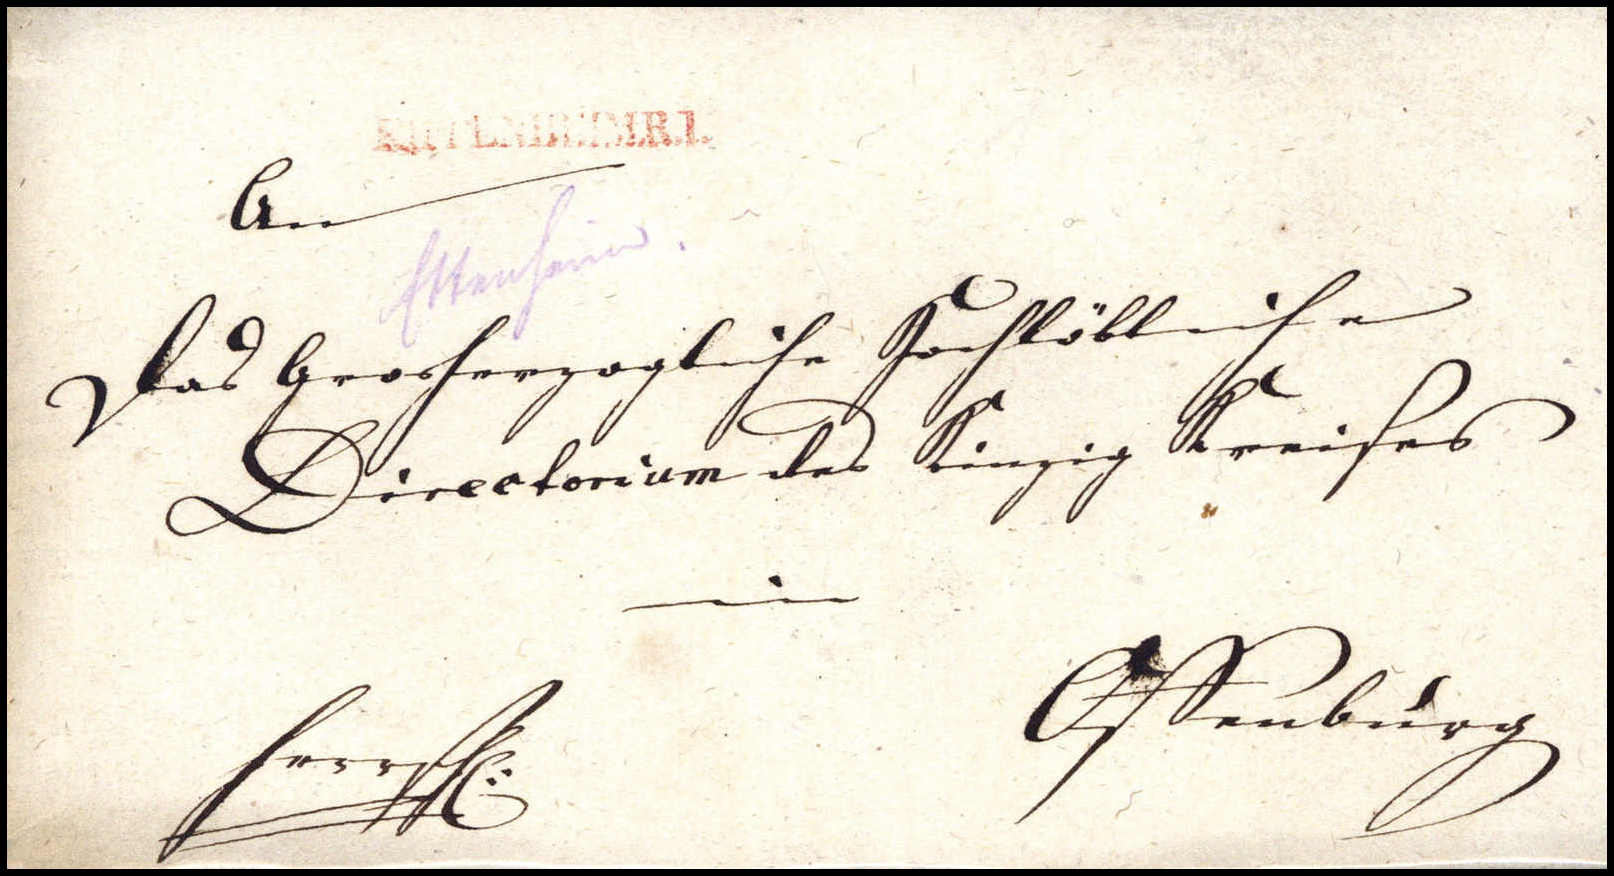 KIPPENHEIM.R.1.
An
Ettenheim.
Das Grosherzogliche Hochlöbliche
Directorium des Kinzig Kreises
in
Offenburg
Herrsch: